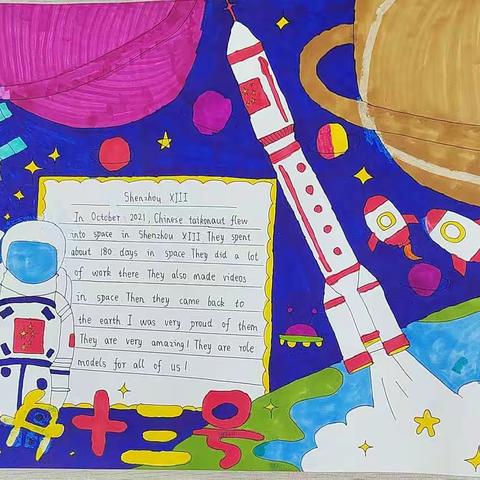 Shenzhou XIII
In October 2021, Chinese taikonaut flew
into space in Shenzhou XIII They spent
about 180 days in space They did a lot
of work there They also made videos
in space Then they came back to
the earth I was very proud of them
They are very amazing! They are role
models for all of us!
十三号